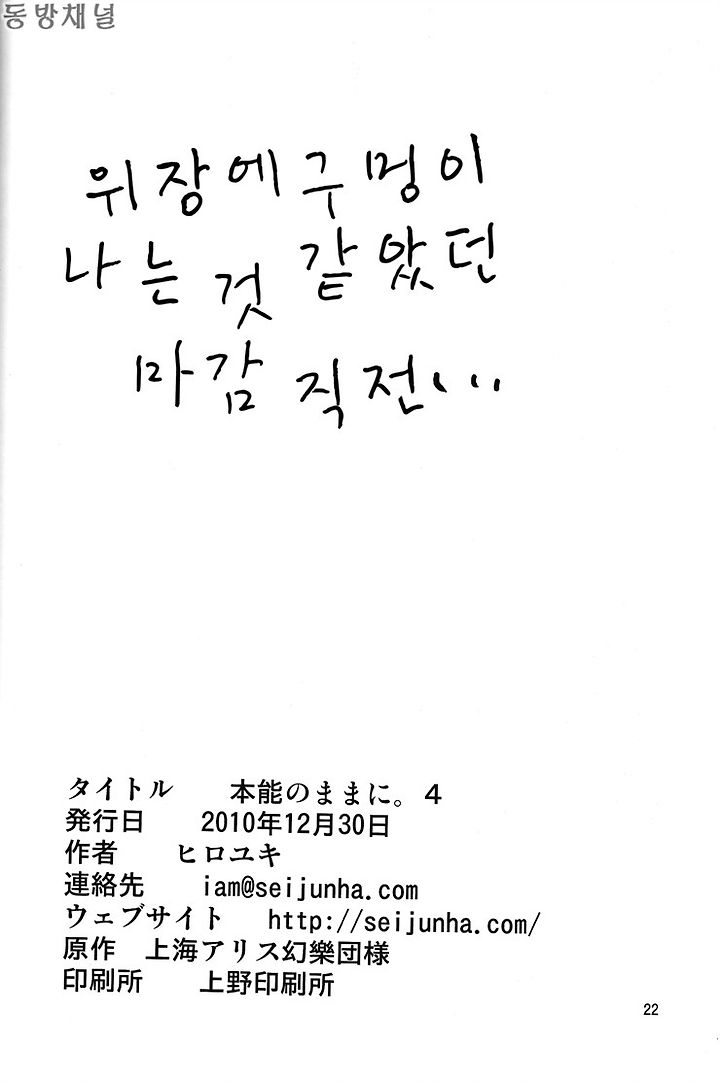 동방채널
위장에 구멍이
나는 것 같았던
마감 직전...
タイトル 本能のままに。4
発行日 2010年12月30日
作者 ヒロユキ
連絡先 iam@seijunha.com
ウェブサイト http://seijunha.com/
原作 上海アリス幻樂団様
印刷所 上野印刷所
22